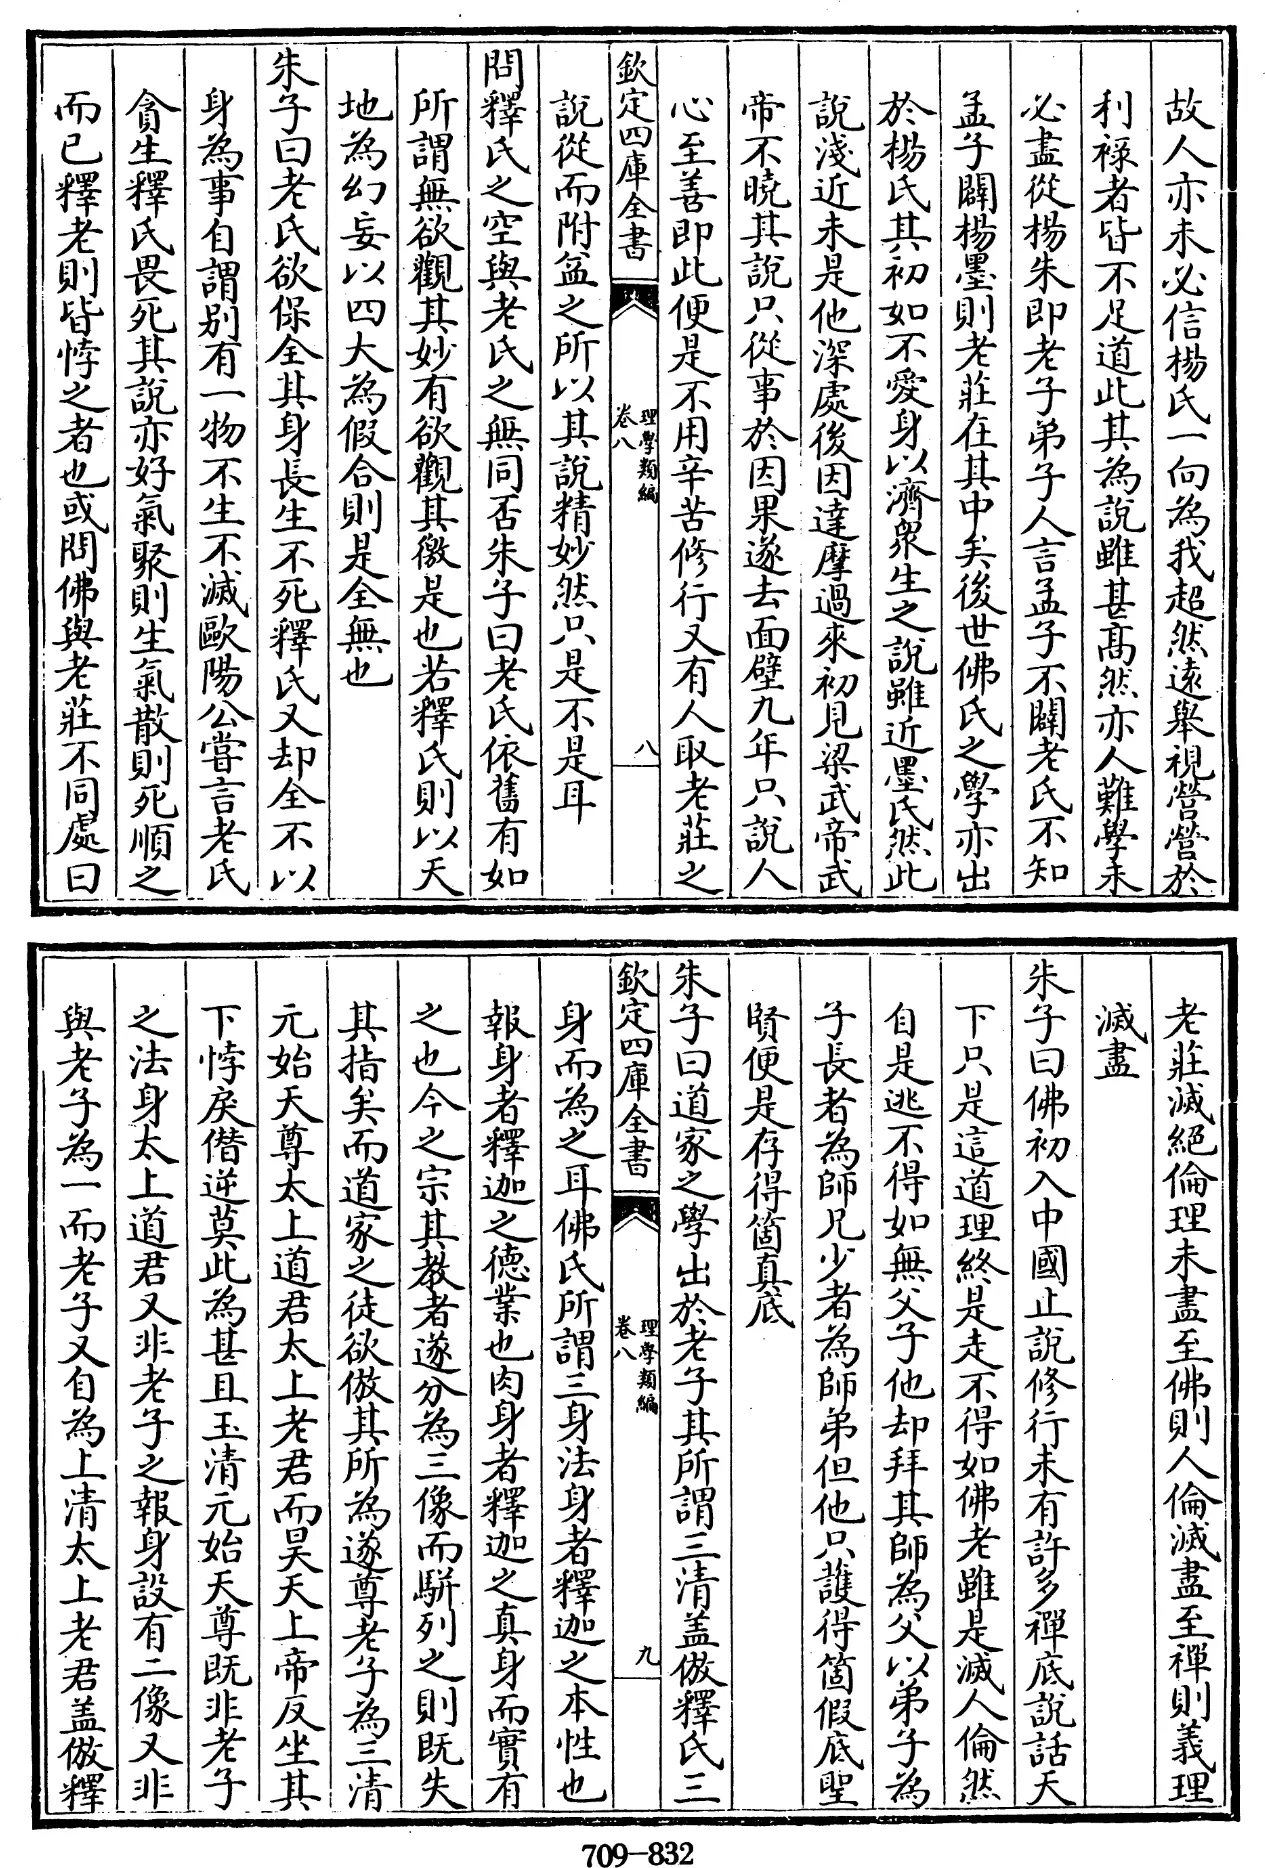 故人亦未必信楊氏一向為我超然遠舉視營營於
利祿者皆不足道此其為說雖甚髙然亦人難學未
必盡從楊朱即老子弟子人言孟子不闢老氏不知
孟子闢楊墨則老莊在其中矣後世佛氏之學亦出
於楊氏其初如不愛身以濟衆生之說雖近墨氏然此
說淺近未是他深處後因達摩過來初見梁武帝武
帝不曉其說只從事於因果遂去面壁九年只說人
心至善即此便是不用辛苦修行又有人取老莊之
欽定四庫全書
理學類編
卷八
八
說從而附益之所以其說精妙然只是不是耳
問釋氏之空與老氏之無同否朱子曰老氏依舊有如
所謂無欲觀其妙有欲觀其徼是也若釋氏則以天
地為幻妄以四大為假合則是全無也
朱子曰老氏欲保全其身長生不死釋氏又却全不以
身為事自謂別有一物不生不滅歐陽公嘗言老氏
貪生釋氏畏死其說亦好氣聚則生氣散則死順之
而已釋老則皆悖之者也或問佛與老莊不同處曰
老莊滅絕倫理未盡至佛則人倫滅盡至禪則義理
滅盡
朱子曰佛初入中國止說修行未有許多禪底說話天
下只是這道理終是走不得如佛老雖是滅人倫然
自是逃不得如無父子他却拜其師為父以弟子為
子長者為師兄少者為師弟但他只護得箇假底聖
賢便是存得箇真底
朱子曰道家之學出於老子其所謂三清盖倣釋氏三
欽定四庫全書
理學類編
卷八
九
身而為之耳佛氏所謂三身法身者釋迦之本性也
報身者釋迦之德業也肉身者釋迦之真身而實有
之也今之宗其教者遂分為三像而駢列之則既失
其指矣而道家之徒欲倣其所為遂尊老子為三清
元始天尊太上道君太上老君而昊天上帝反坐其
下悖戾僭逆莫此為甚且玉清元始天尊既非老子
之法身太上道君又非老子之報身設有二像又非
與老子為一而老子又自為上清太上老君盖倣釋
709-832